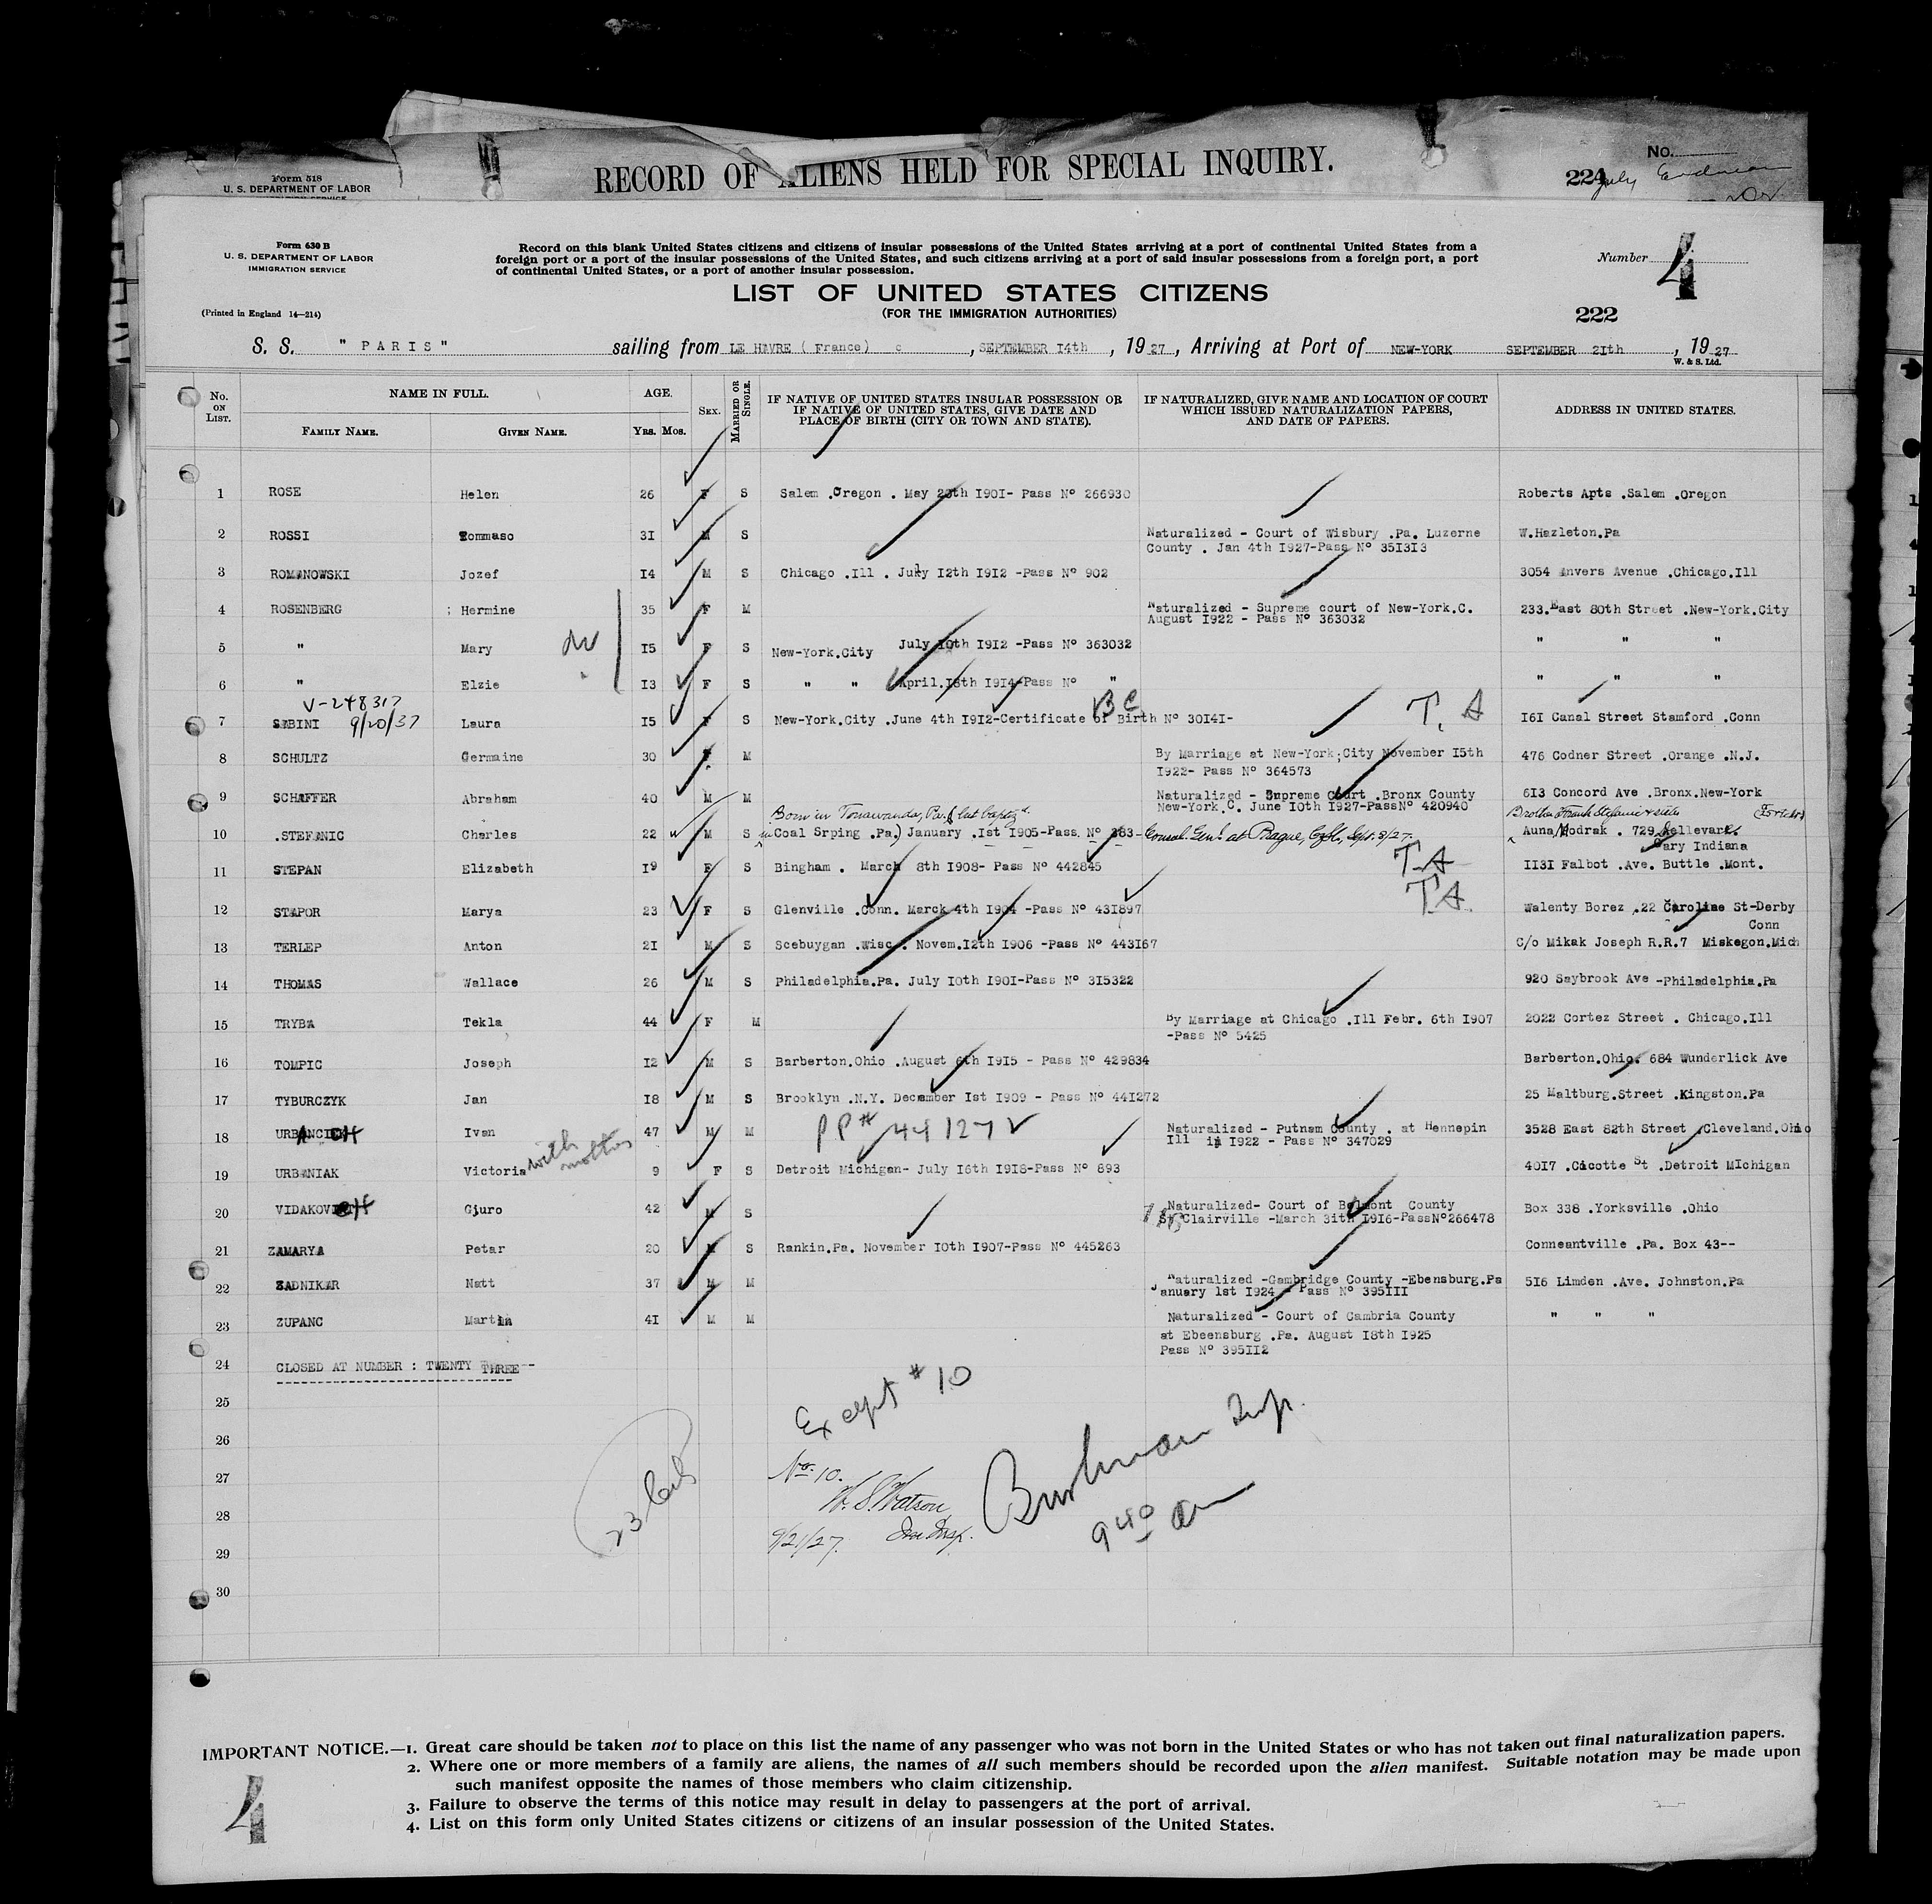 RECORD OF ALIENS HELD FOR SPECIAL INQUIRY.
No.
Form 518
U. S. DEPARTMENT OF LABOR
224
Form 630 B
U. S. DEPARTMENT OF LABOR
IMMIGRATION SERVICE
(Printed in England 14—214)
Record on this blank United States citizens and citizens of insular possessions of the United States arriving at a port of continental United States from a
foreign port or a port of the insular possessions of the United States, and such citizens arriving at a port of said insular possessions from a foreign port, a port
of continental United States, or a port of another insular possession.
LIST OF UNITED STATES CITIZENS
(FOR THE IMMIGRATION AUTHORITIES)
Number 4
222
S. S. " PARIS " sailing from LE HAVRE ( France) , SEPTEMBER I4th , 19 27 , Arriving at Port of NEW-YORK SEPTEMBER 2Ith , 19 27
W. & S. Ltd.
No. ON LIST. NAME IN FULL. FAMILY NAME. GIVEN NAME. AGE. YRS. MOS. SEX. MARRIED OR SINGLE. IF NATIVE OF UNITED STATES INSULAR POSSESSION OR IF NATIVE OF UNITED STATES, GIVE DATE AND PLACE OF BIRTH (CITY OR TOWN AND STATE). IF NATURALIZED, GIVE NAME AND LOCATION OF COURT WHICH ISSUED NATURALIZATION PAPERS, AND DATE OF PAPERS. ADDRESS IN UNITED STATES.
1 ROSE Helen 26 F S Salem .Oregon . May 28th I90I- Pass Nº 266930 Roberts Apts .Salem .Oregon
2 ROSSI Tommaso 3I M S Naturalized - Court of Wisbury .Pa. Luzerne W.Hazleton.Pa
County . Jan 4th I927-Pass Nº 35I3I3
3 ROMANOWSKI Jozef I4 M S Chicago .Ill . July I2th I9I2 -Pass Nº 902 3054 Anvers Avenue .Chicago.Ill
4 ROSENBERG Hermine 35 F M Naturalized - Supreme court of New-York.C. 233.East 80th Street .New-York.City
August I922 - Pass Nº 363032
5 " Mary I5 F S New-York.City July I0th I9I2 -Pass Nº 363032 " " "
6 " Elzie I3 F S " " April.I8th I9I4-Pass Nº " " " "
V-248317
BC
7 SABINI 9/20/37 Laura I5 F S New-York.City .June 4th I9I2-Certificate of Birth Nº 30I4I- T. A I6I Canal Street Stamford .Conn
8 SCHULTZ Germaine 30 F M By Marriage at New-York;City November I5th 476 Codner Street .Orange .N.J.
I922- Pass Nº 364573
9 SCHAFFER Abraham 40 M M Naturalized - Supreme Court .Bronx County 6I3 Concord Ave .Bronx.New-York
New-York.C. June I0th I927-PassNº 420940
Born in Tonawanda, Pa.
10 .STEFANIC Charles 22 M S Coal Srping .Pa.) January .Ist I905-Pass Nº 283- Consul. Genl. at Prague, Sept. 3/27. Auna Hodrak . 729
Gary Indiana
11 STEPAN Elizabeth I9 F S Bingham . March 8th I908- Pass Nº 442845 T A II3I Falbot .Ave. Buttle .Mont.
12 STAPOR Marya 23 F S Glenville .Conn. Marck 4th I904 -Pass Nº 43I897 T.A. Walenty Borez .22 Caroline St-Derby
Conn
13 TERLEP Anton 2I M S Scebuygan .Wisc . Novem.I2th I906 -Pass Nº 443I67 C/o Mikak Joseph R.R.7 Miskegon.Mich
14 THOMAS Wallace 26 M S Philadelphia.Pa. July I0th I90I-Pass Nº 3I5322 920 Saybrook Ave -Philadelphia.Pa
15 TRYBA Tekla 44 F M By Marriage at Chicago .Ill Febr. 6th I907 2022 Cortez Street . Chicago.Ill
-Pass Nº 5425
16 TOMPIC Joseph I2 M S Barberton.Ohio .August 6th I9I5 - Pass Nº 429834 Barberton.Ohio. 684 Wunderlick Ave
17 TYBURCZYK Jan I8 M S Brooklyn .N.Y. December Ist I909 - Pass Nº 44I272 25 Maltburg.Street .Kingston.Pa
PP# 441272
18 Ivan 47 M M Naturalized - Putnam County . at Hennepin 3528 East 82th Street .Cleveland.Ohio
Ill in I922 - Pass Nº 347029
19 URBANIAK Victoria with mother 9 F S Detroit Michigan- July I6th I9I8-Pass Nº 893 40I7 .Cicotte St .Detroit MIchigan
20 Gjuro 42 M S Naturalized- Court of Belmont County Box 338 .Yorksville .Ohio
St Clairville -March 3ith I9I6-PassNº266478
21 ZAMARYA Petar 20 M S Rankin.Pa. November I0th I907-Pass Nº 445263 Conneantville .Pa. Box 43--
22 ZADNIKAR Natt 37 M M Naturalized -Cambridge County -Ebensburg.Pa 5I6 Limden .Ave. Johnston.Pa
January 1st I924 - Pass Nº 395III
23 ZUPANC Martin 4I M M Naturalized - Court of Cambria County " " "
at Ebeensburg .Pa. August I8th I925
Pass Nº 395II2
24 CLOSED AT NUMBER : TWENTY THREE--
25
26
27
28
29
30
Except # 10
No. 10.
W. S. Watson
9/21/27.
Bushman Insp.
9 40 am
IMPORTANT NOTICE.—1. Great care should be taken not to place on this list the name of any passenger who was not born in the United States or who has not taken out final naturalization papers.
2. Where one or more members of a family are aliens, the names of all such members should be recorded upon the alien manifest. Suitable notation may be made upon
such manifest opposite the names of those members who claim citizenship.
3. Failure to observe the terms of this notice may result in delay to passengers at the port of arrival.
4. List on this form only United States citizens or citizens of an insular possession of the United States.
4